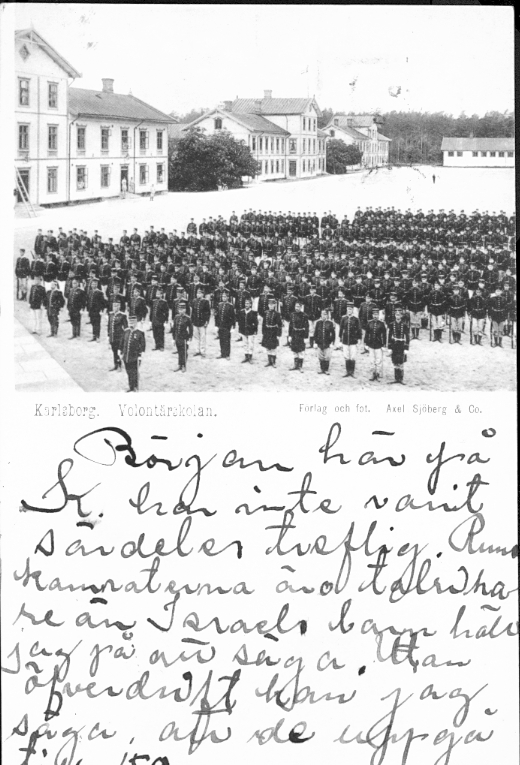 Karlsborg. Volontärskolan. Förlag och fot. Axel Sjöberg & Co.
Början här på
K. har inte varit
särdeles treflig. Rums
kamraterna äro talrika
re än Israels barn håller
jag på att säga. Utan
öfverdrift kan jag
säga, att de uppgå
till 150